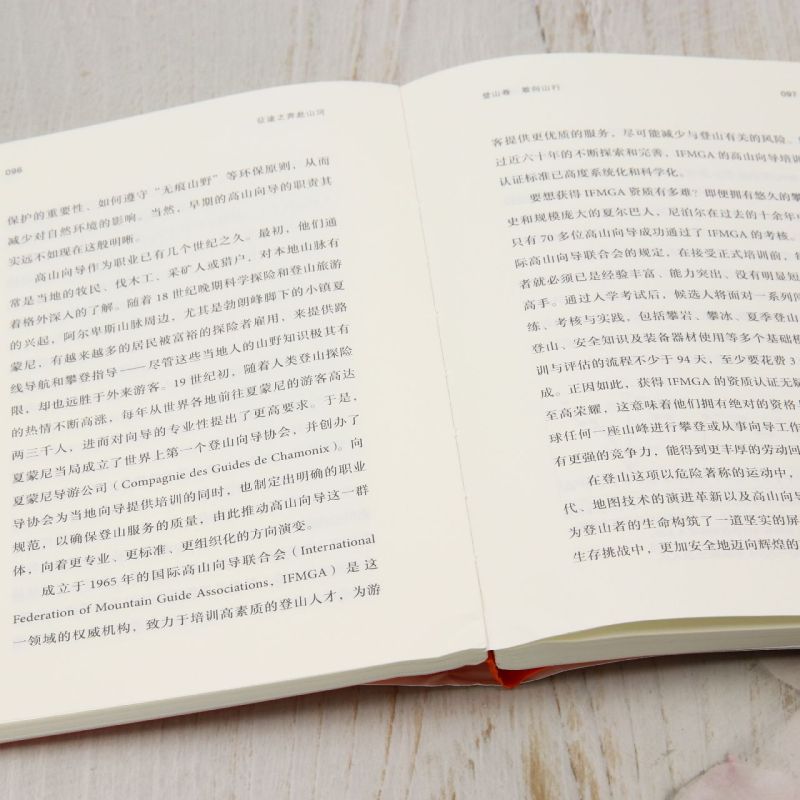 096
征途之奔赴山河
保护的重要性、如何遵守“无痕山野”等环保原则，从而
减少对自然环境的影响。当然，早期的高山向导的职责其
实远不如现在这般明晰。
高山向导作为职业已有几个世纪之久。最初，他们通
常是当地的牧民、伐木工、采矿人或猎户，对本地山脉有
着格外深入的了解。随着 18 世纪晚期科学探险和登山旅游
的兴起，阿尔卑斯山脉周边，尤其是勃朗峰脚下的小镇夏
蒙尼，有越来越多的居民被富裕的探险者雇用，来提供路
线导航和攀登指导——尽管这些当地人的山野知识极其有
限，却也远胜于外来游客。19 世纪初，随着人类登山探险
的热情不断高涨，每年从世界各地前往夏蒙尼的游客高达
两三千人，进而对向导的专业性提出了更高要求。于是，
夏蒙尼当局成立了世界上第一个登山向导协会，并创办了
夏蒙尼导游公司（Compagnie des Guides de Chamonix）。向
导协会为当地向导提供培训的同时，也制定出明确的职业
规范，以确保登山服务的质量，由此推动高山向导这一群
体，向着更专业、更标准、更组织化的方向演变。
成立于 1965 年的国际高山向导联合会（International
Federation of Mountain Guide Associations，IFMGA）是这
一领域的权威机构，致力于培训高素质的登山人才，为游
登山卷 敢向山行
097
客提供更优质的服务，尽可能减少与登山有关的风险。
过近六十年的不断探索和完善，IFMGA 的高山向导培训
认证标准已高度系统化和科学化。
要想获得 IFMGA 资质有多难？即便拥有悠久的攀
史和规模庞大的夏尔巴人，尼泊尔在过去的十余年
只有 70 多位高山向导成功通过了 IFMGA 的考核。
际高山向导联合会的规定，在接受正式培训前，
者就必须已是经验丰富、能力突出、没有明显短
高手。通过入学考试后，候选人将面对一系列
练、考核与实践，包括攀岩、攀冰、夏季登山
登山、安全知识及装备器材使用等多个基础
训与评估的流程不少于 94 天，至少要花费 3
成。正因如此，获得 IFMGA 的资质认证无疑
至高荣耀，这意味着他们拥有绝对的资格
球任何一座山峰进行攀登或从事向导工作
有更强的竞争力，能得到更丰厚的劳动回
在登山这项以危险著称的运动中，
代、地图技术的演进革新以及高山向
为登山者的生命构筑了一道坚实的屏
生存挑战中，更加安全地迈向辉煌的